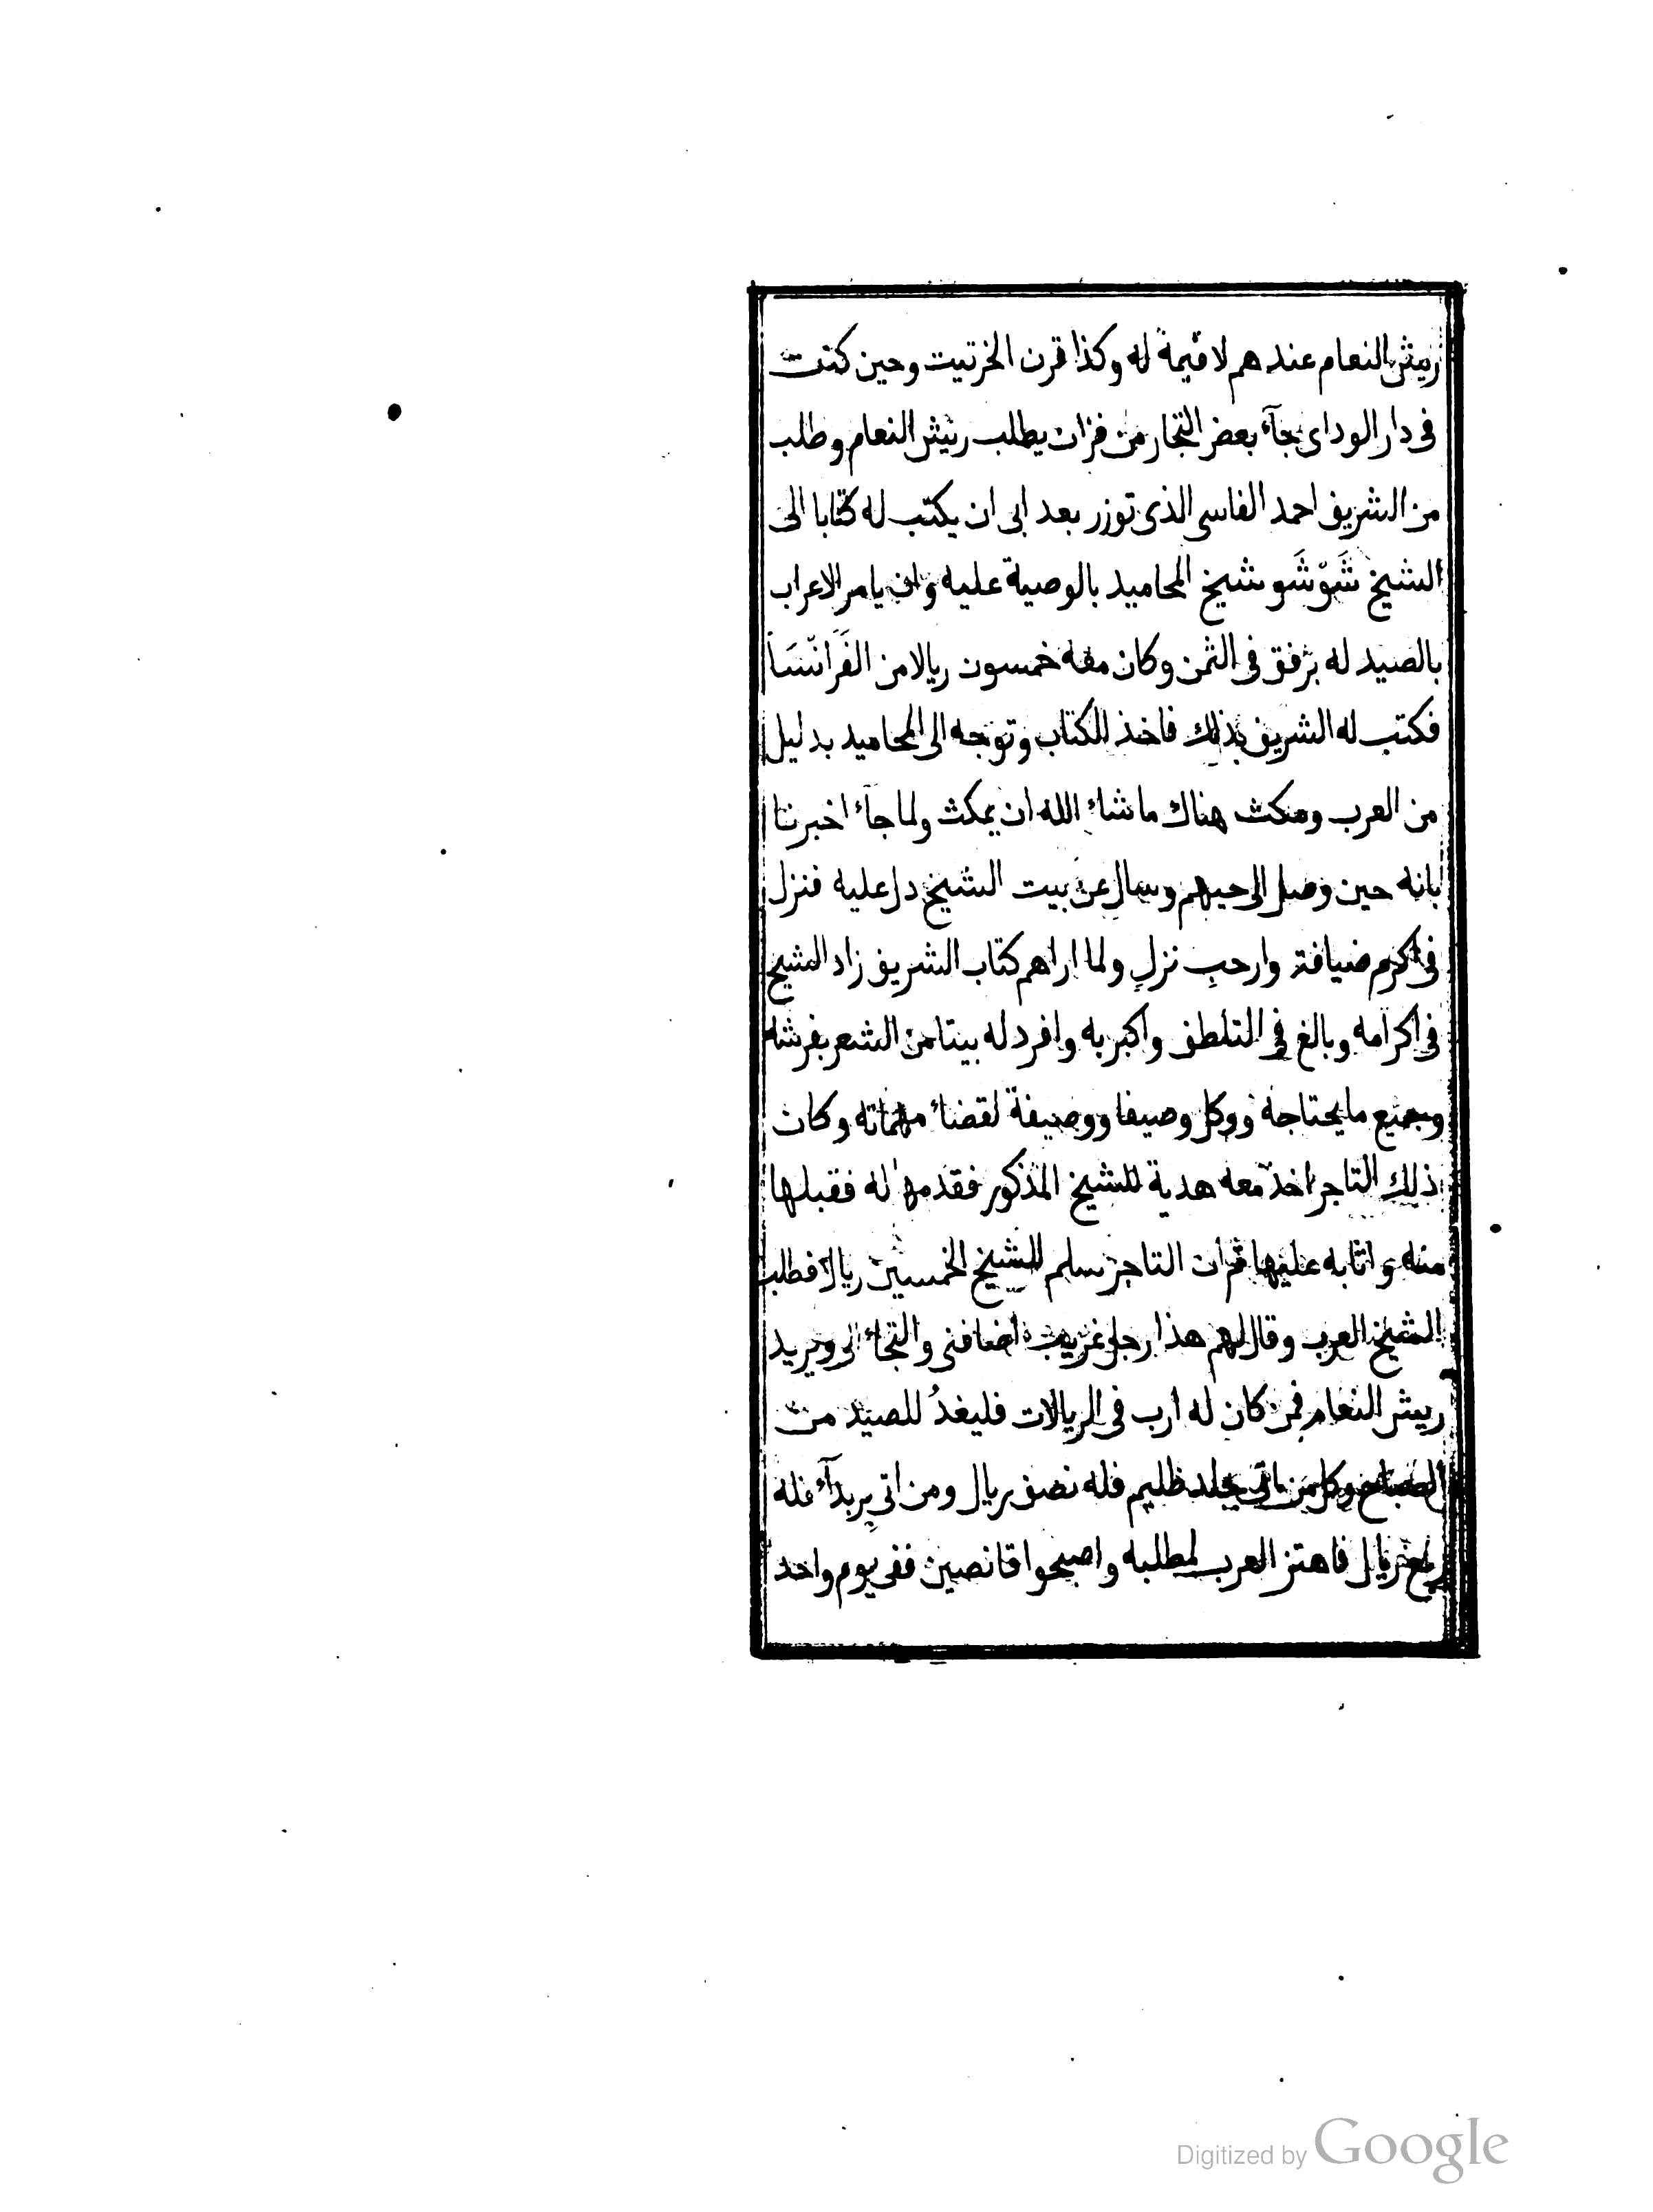 ريش النعام عندهم لا قيمة له وكذا قرن الخرتيت وحين كنت
فى دار الوداى جآء بعض التجار من فزان يطلب ريش النعام وطلب
من الشريف احمد الفاسى الذى توزر بعد ابى ان يكتب له كتابا الى
الشيخ شَوْشَو شيخ المحاميد بالوصية عليه وان يامر الاعراب
بالصيد له برفق فى الثمن وكان معه خمسون ريالا من الفَرَانْسَا
فكتب له الشريف بذلك فاخذ الكتاب وتوجه الى المحاميد بدليل
من العرب ومكث هناك ما شاء الله ان يمكث ولما جآء اخبرنا
بانه حين وصل الى حيهم وسال عن بيت الشيخ دل عليه فنزل
فى اكرم ضيافة وارحبِ نزلٍ ولما اراهم كتاب الشريف زاد الشيخ
فى اكرامه وبالغ فى التلطف واكبر به وافرد له بيتا من الشعر بفرشه
وجميع ما يحتاجه ووكل وصيفا ووصيفة لقضاء مهماته وكان
ذلك التاجر اخذ معه هدية للشيخ المذكور فقدمها له فقبلها
منه واثابه عليها ثم ان التاجر سلم للشيخ الخمسين ريالا فطلب
الشيخ العرب وقال لهم هذا رجل غريب اضافنى والتجاء الى ويريد
ريش النعام فمن كان له ارب فى الريالات فليغدُ للصيد من
الصباح وكل من ياتى بجلد ظليم فله نصف ريال ومن اتى بِربدآء فله
ربع ريال فاهتز العرب لمطلبه واصبحوا قانصين ففى يوم واحد
Digitized by Google